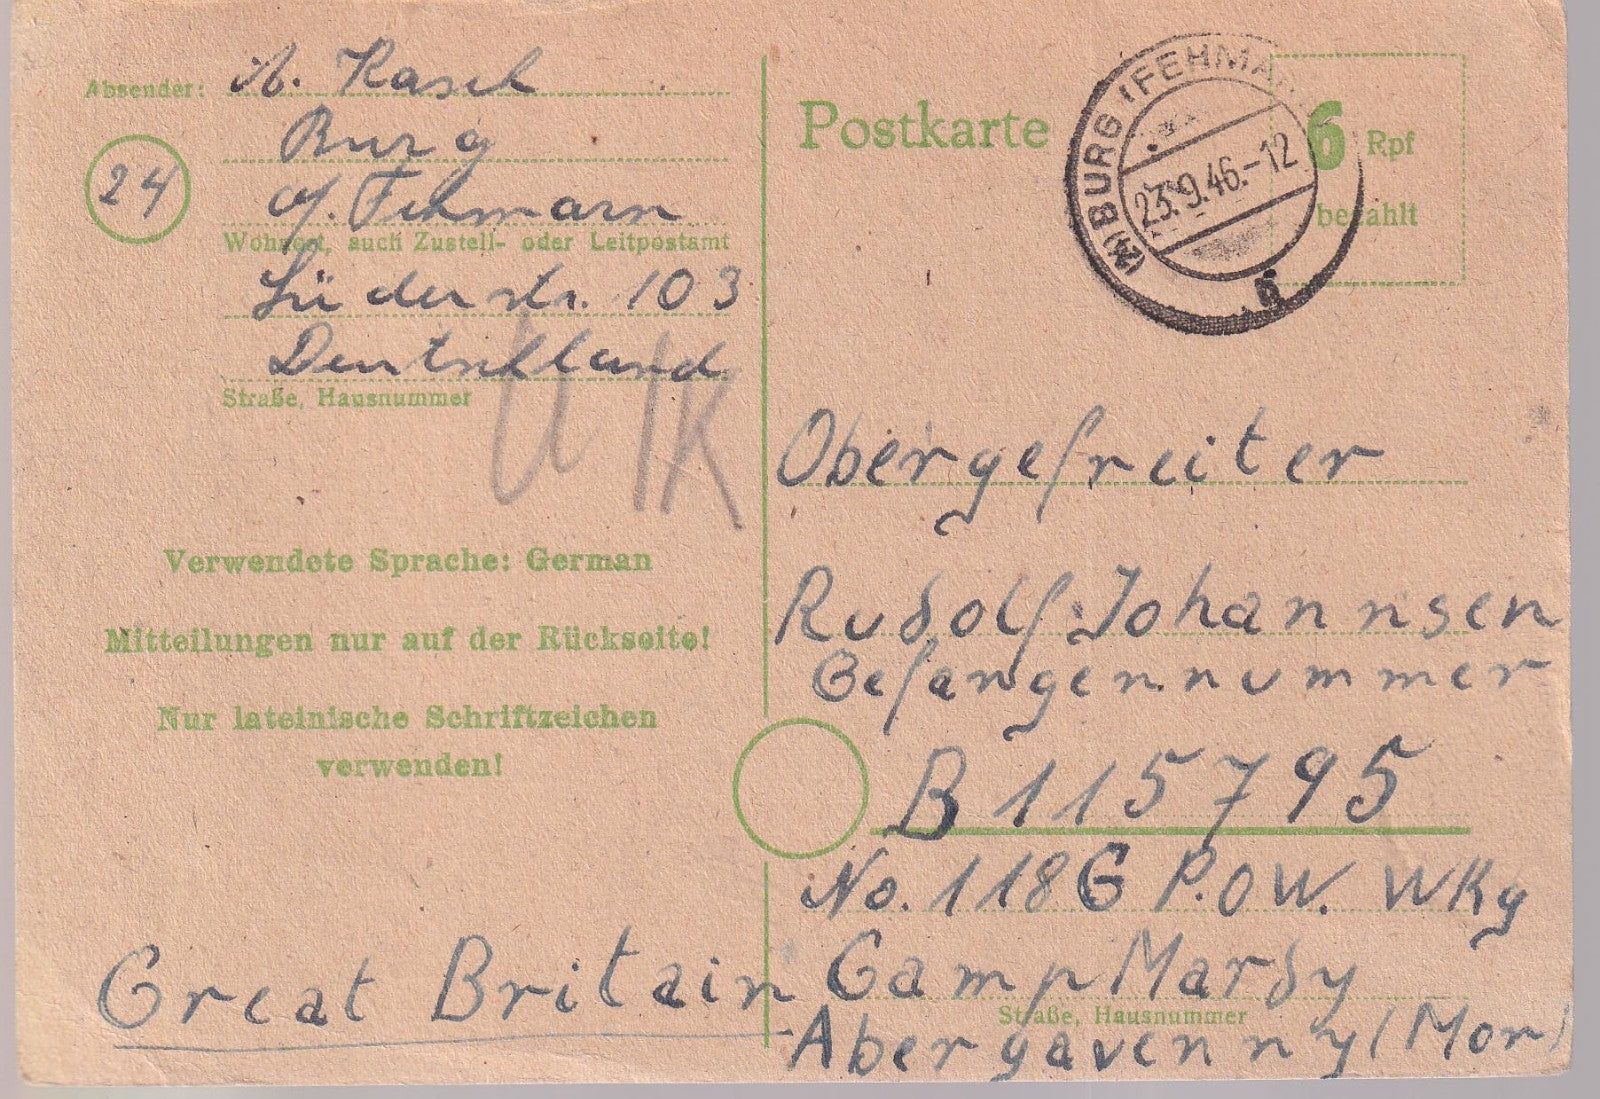 Absender: A. Rasch
Burg
a/. Fehmarn
24
Wohnort, auch Zustell- oder Leitpostamt
Lüderstr. 103
Deutschland
Straße, Hausnummer
Verwendete Sprache: German
Mitteilungen nur auf der Rückseite!
Nur lateinische Schriftzeichen
verwenden!
Great Britain
Postkarte
(24) BURG (FEHMA
23.9.46.-12
6 Rpf
bezahlt
Obergefreiter
Rudolf Johannsen
Gefangennummer
B 115795
No. 118 G P.O.W. WKg
Camp Mardy
Straße, Hausnummer
Abergavenny (Mon)